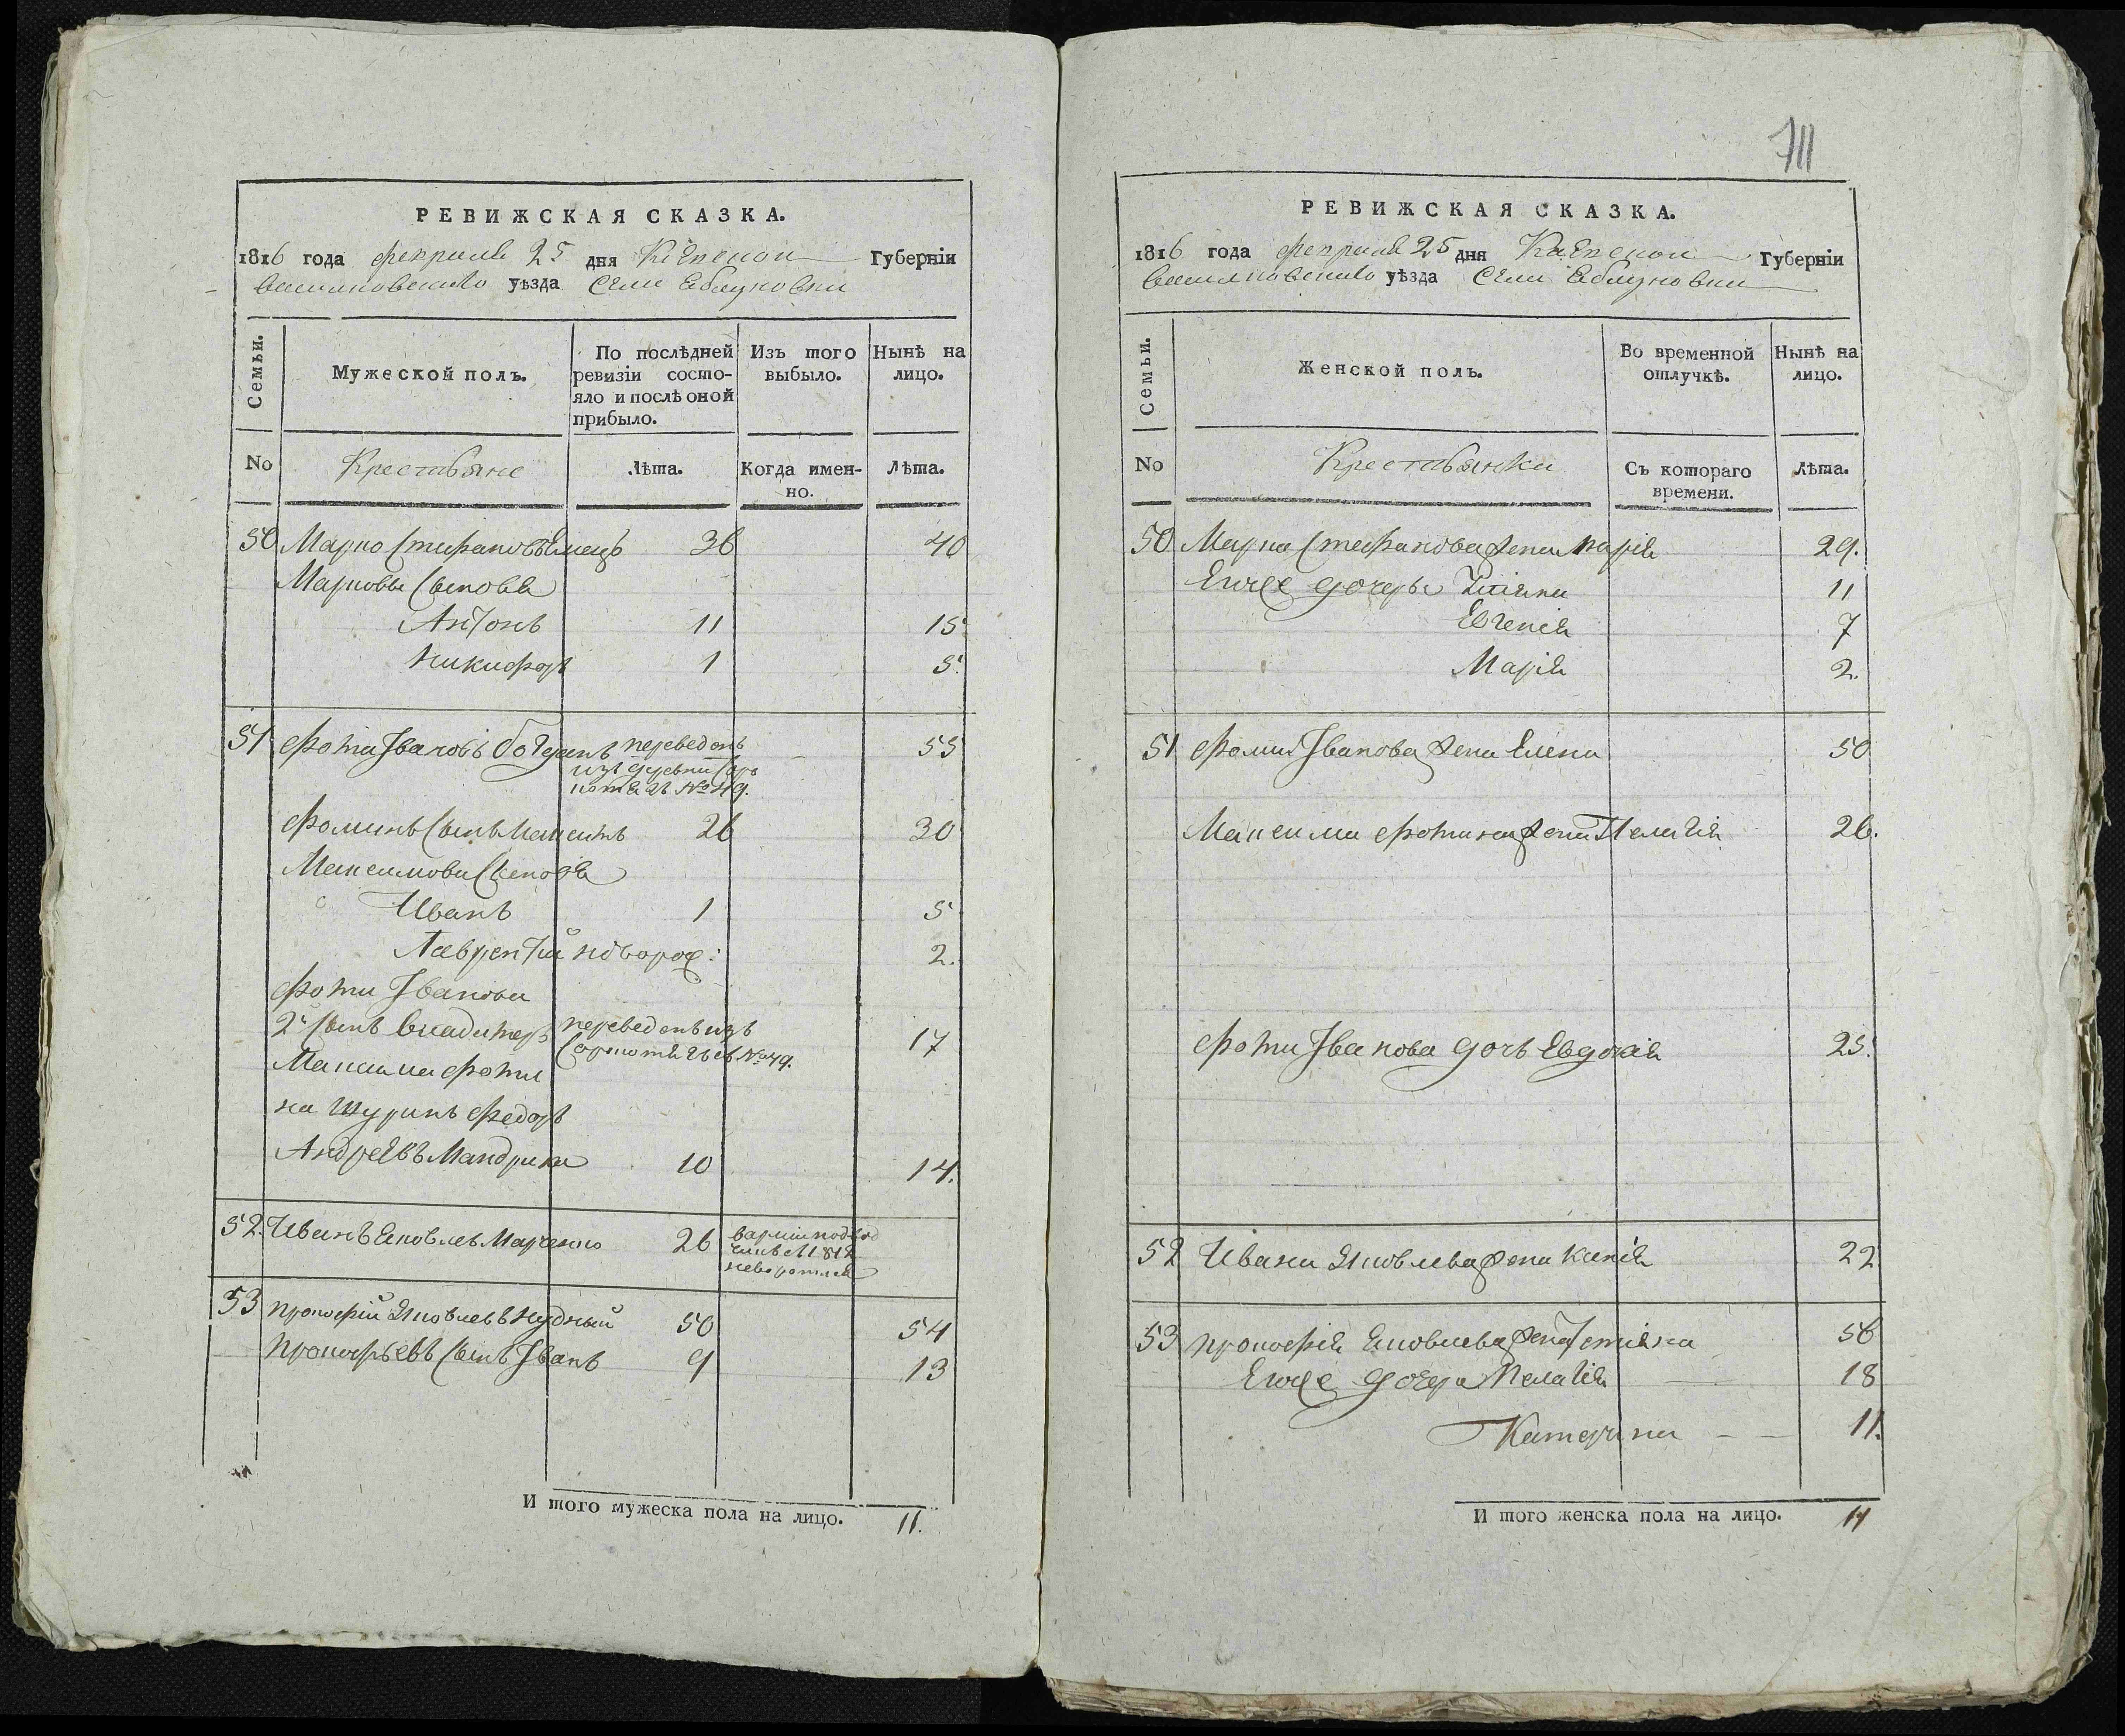 РЕВИЖСКАЯ СКАЗКА.
1816 года февраля 25 дня Киевской Губерніи
васильковскаго уѣзда Села Яблуновки
Семьи.
Мужеской полъ.
По послѣдней ревизіи состо-
яло и послѣ оной
прибыло.
Изъ того
выбыло.
Нынѣ на
лицо.
No
Крестьяне
Лѣта.
Когда имен-
но.
Лѣта.
50 Марко Стифановъ Емецъ 36 40
Марковы Сыновя
Антонъ 11 15
Никифоръ 1 5.
51 Фома Івановъ переведенъ 55
изъ деревни
№ 49.
Фоминъ Сынъ Максимъ 26 30
Максимовы Сыновя
Иванъ 1 5
Лаврентій новорож: 2.
Фомы Іванова
2й Сынъ Владимеръ переведенъ изъ 17
№ 49.
Максима Фоми
на Шуринъ Федоръ
Андреевъ Мандрика 10 14.
52. Иванъ Яковлев Марченко 26
53 Прокофій Яковлевъ Нудный 50 54
Прокофьевъ Сынъ Іванъ 9 13
И того мужеска пола на лицо. 11.
711
РЕВИЖСКАЯ СКАЗКА.
1816 года февраля 25 дня Киевской Губерніи
васильковскаго уѣзда Села Яблуновки
Семьи.
Женской полъ.
Во временной
отлучкѣ.
Нынѣ на
лицо.
No
Крестьянки
Съ котораго
времени.
Лѣта.
50 Марка Стефанова жена Марія 29.
Егоже дочеры Татіяна 11
Евгенія 7
Марія 2.
51 Фомы Іванова жена Елена 50
Максима Фомина жена Пелагія 26.
Фомы Іванова дочъ Евдокія 25.
52 Ивана Яковлева жена Ксенія 22
53 Прокофія Яковлева жена Тетіяна 56
Егоже дочеры Пелагія 18
Катерина 11.
И того женска пола на лицо. 11